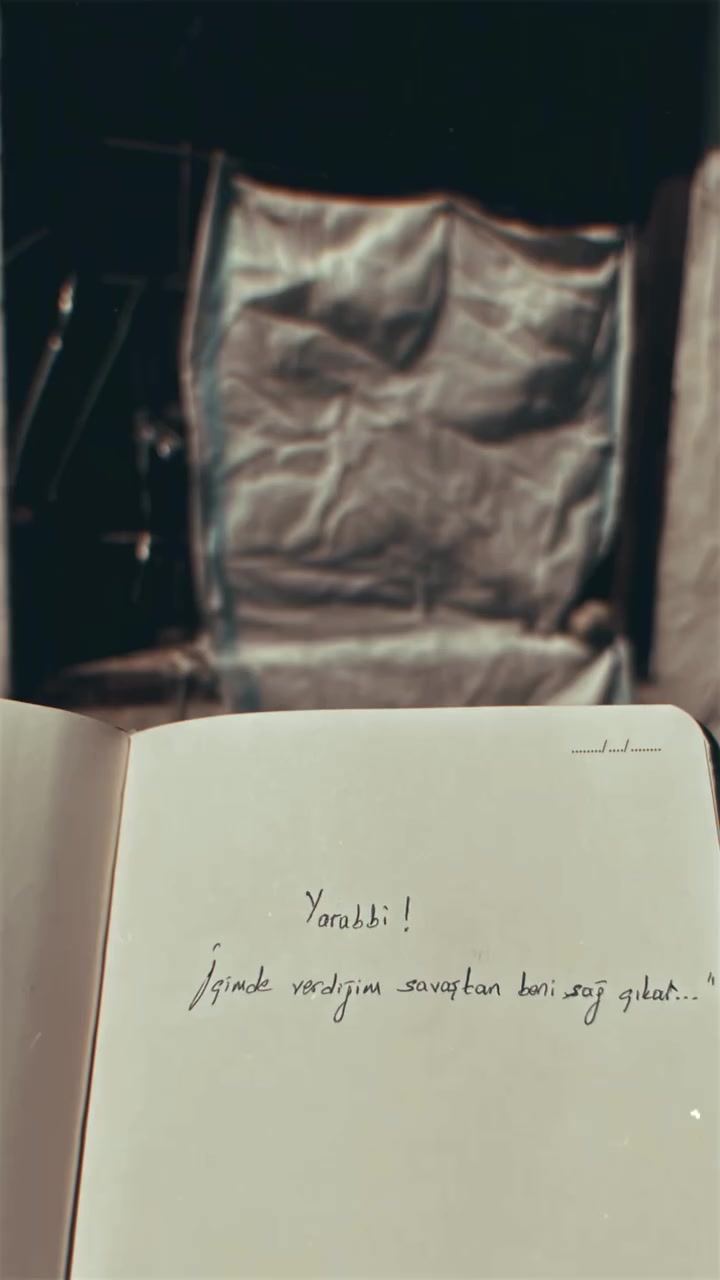 ......../..../........
Yarabbi !
İçimde verdiğim savaştan beni sağ çıkar..."